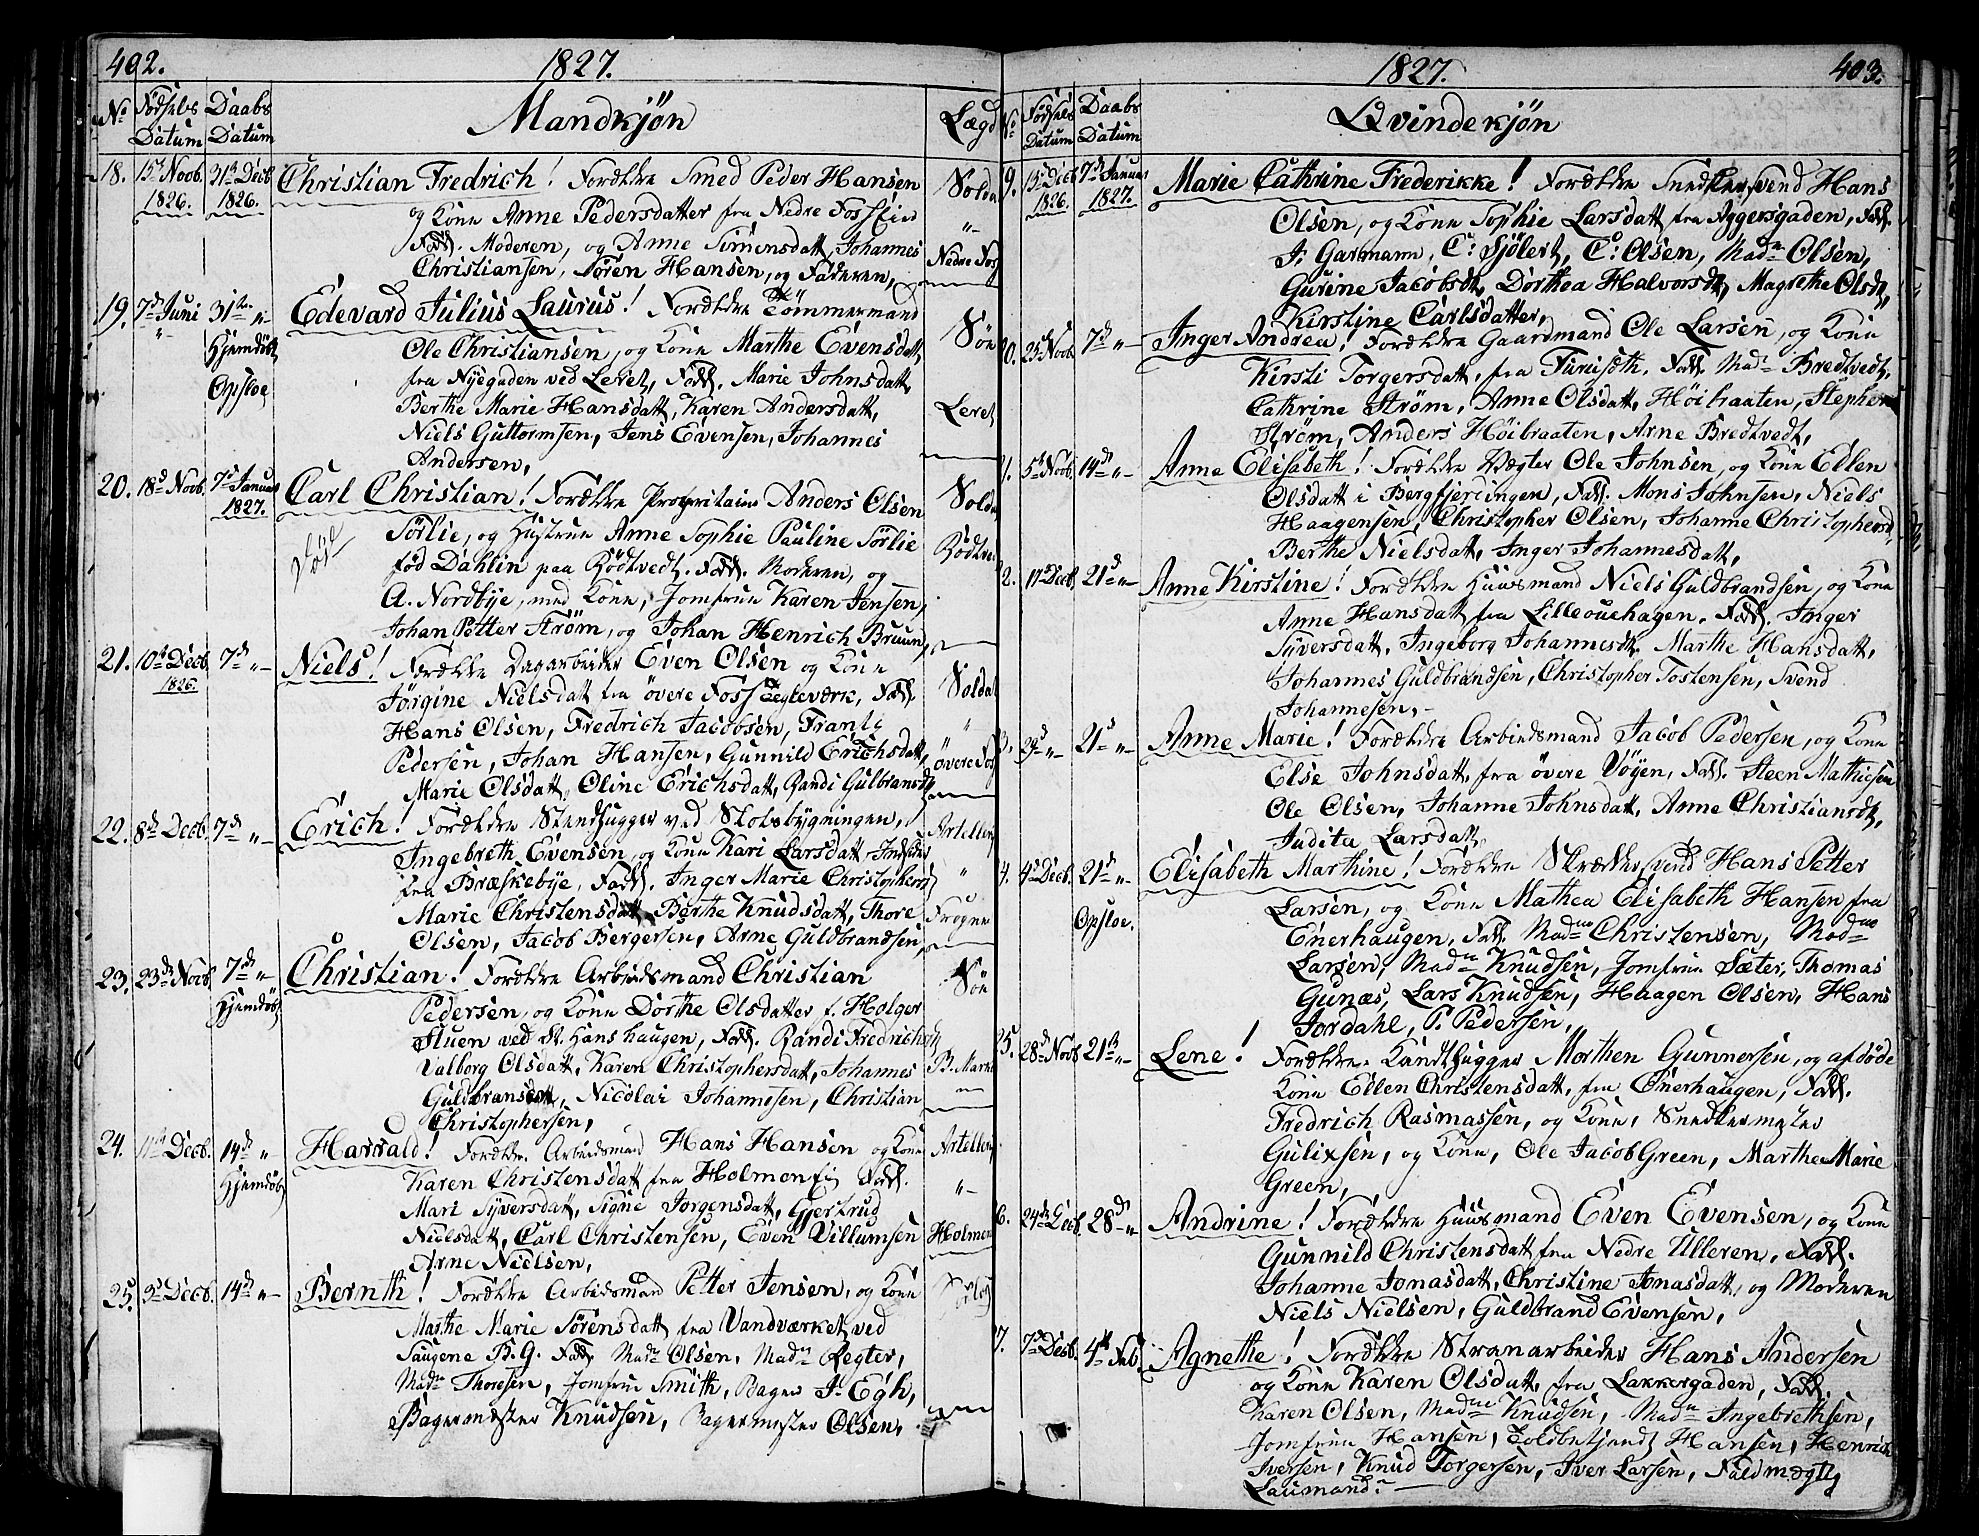 402.
1827.
No Fødsels Datum Daabs Datum Mandkjön Lægd
18. 15de Novb. 1826. 31te Decb 1826. Christian Fredrich! Forældre Smed Peder Hansen Solda
og Kone Anne Pedersdatter fra Nedre Foss Eiend
Fadd. Moderen, og Anne Simensdatt, Johannes
Christiansen, Sören Hansen, og Faderen, Nedre Fos
19. 7de Juni 31te Hjemdöbt Opsloe Edevard Julius Laurus! Forældre Tömmermand Söe
Ole Christiansen, og Kone Marthe Evensdatt
fra Nyegaden ved Leret, Fadd. Marie Johnsdatt,
Berthe Marie Hansdatt, Karen Andersdatt, Leret
Niels Guttormsen, Jens Evensen, Johannes
Andersen,
20. 18d Novb. 7d Januar 1827. Carl Christian! Forældre Proprietair Anders Olsen Solda
Sörlie, og Hustrue Anne Sophie Pauline Sörlie
föd Dahlin paa Rödtvedt. Fadd. Moderen, og Rödtve
A. Nordbye, med Kone, Jomfrue Karen Jensen,
Johan Petter Ström, og Johan Henrich Bruun,
21. 10de Decb. 1826. 7de Niels! Forældre Dagarbeider Even Olsen og Kone Soldat
Jörgine Nielsdatt fra övere Foss Tegleværk, Fadd
Hans Olsen, Fredrich Jacobsen, Frantz
Pedersen, Johan Hansen, Gunnild Erichsdatt, övere Fos
Marie Olsdatt, Oline Erichsdatt, Randi Gulbransdt
22. 8de Decb. 7de Erich! Forældre Steenhugger ved Slotsbygningen, Artellerj
Ingebreth Evensen, og Kone Kari Larsdatt, Inderst
fra Bræskebye, Fadd. Inger Marie Christophersd
Marie Christensdatt, Berthe Knudsdatt, Thore Frogner
Olsen, Jacob Bergersen, Arne Guldbrandsen,
23. 23de Novb 7de Hjemdöbt Christian! Forældre Arbeidsmand Christian Söe
Pedersen, og Kone Dorthe Olsdatter f. Holger
Stuen ved St. Hans haugen, Fadd. Randi Fredrichsd
Valborg Olsdatt, Karen Christophersdatt, Johannes B. Marke
Guldbransen, Nicolai Johannesen, Christian
Christophersen,
24. 11te Decb. 14de Hjemdöbt Harrald! Forældre Arbeidsmand Hans Hansen og Kone Artellerj
Karen Christensdatt fra Holmen Ei Fadd.
Mari Syversdatt, Signe Jorgensdatt, Gjertrud
Nielsdatt, Carl Christensen, Even Villumsen Holmen
Arne Nielsen,
25. 9d Decb. 14de Bernth! Forældre Arbeidsmand Petter Jensen, og Kone
Marthe Marie Sörensdatt fra Vandværket ved
Saugene B. G. Fadd Madm Olsen, Madm Regter,
Madm Thoresen, Jomfrue Smith, Bager J. Egh,
Bagermester Knudsen, Bagermester Olsen,
403.
1827.
No Fødsels Datum Daabs Datum Qvindekjön
9. 15de Decb 1826. 7de Januar 1827. Marie Cathrine Frederikke! Forældre Snedkersvend Hans
Olsen, og Kone Sophie Larsdatt fra Aggersgaden, Fadd.
J. Garmann, C: Sjölert, C: Olsen, Madm Olsen,
Gurine Jacobsdt, Dorthea Halvorsdt, Magrethe Olsdt,
Kirstine Carlsdatter,
0. 25d Novb. 7de Inger Andrea! Forældre Gaardmand Ole Larsen, og Kone
Kirsti Torgersdatt, fra Furuseth, Fadd. Madm Bredtvedt,
Cathrine Ström, Anne Olsdatt, Höibraaten, Stephen
Ström, Anders Höibraaten, Arne Bredtvedt,
1. 5te Novb. 14de Anne Elisabeth! Forældre Vægter Ole Johnsen, og Kone Ellen
Olsdatt i Bergfjerdingen, Fadd. Mons Johnsen, Niels
Haagensen, Christopher Olsen, Johanne Christophersd,
Berthe Nielsdatt, Inger Johannesdatt,
2. 17de Decb. 21d Anne Kirstine! Forældre Huusmand Niels Guldbrandsen, og Kone
Anne Hansdatt fra Lilleouehagen, Fadd. Inger
Syversdatt, Ingeborg Johannesdt, Marthe Hansdatt,
Johannes Guldbrandsen, Christopher Tostensen, Svend
Johannesen,
3. 29d 21d Anne Marie! Forældre Arbeidsmand Jacob Pedersen, og Kone
Else Johnsdatt, fra övere Vöyen, Fadd. Steen Mathiesen
Ole Olsen, Johanne Johnsdatt, Anne Christiansdt,
Judita Larsdatt,
4. 4de Decb. 21d Opsloe. Elisabeth Marthine! Forældre Skrædersvend Hans Petter
Larsen, og Kone Mathea Elisabeth Hansen fra
Enerhaugen, Fadd. Madme Christensen, Madme
Larsen, Madm Knudsen, Jomfrue Sæter, Thomas
Gunæs, Lars Knudsen, Haagen Olsen, Hans
Jordahl, P. Pedersen,
25. 28d Novb 21de Lene! Forældre Kandthugger Morthen Gunnersen, og afdöde
Kone Ellen Christensdatt, fra Enerhaugen, Fadd.
Fredrich Rasmassen, og Kone, Snedkermester
Gulixsen, og Kone, Ole Jacob Green, Marthe Marie
Green,
6. 24de Decb. 28de Andrine! Forældre Huusmand Even Evensen, og Kone
Gunnild Christensdatt fra Nedre Ulleren, Fadd.
Johanne Jonasdatt, Christine Jonasdatt, og Moderen
Niels Nielsen, Guldbrand Evensen,
7. 7de Decb. 4de Feb Agnethe! Forældre Stranarbeider Hans Andersen
og Kone Karen Olsdatt, fra Lakkergaden, Fadd.
Karen Olsen, Madme Knudsen, Madm Ingebrethsen,
Jomfrue Hansen, Toldbetjendt Hansen, Henrich
Iversen, Knud Torgersen, Iver Larsen, Fuldmægtig
Laumand.